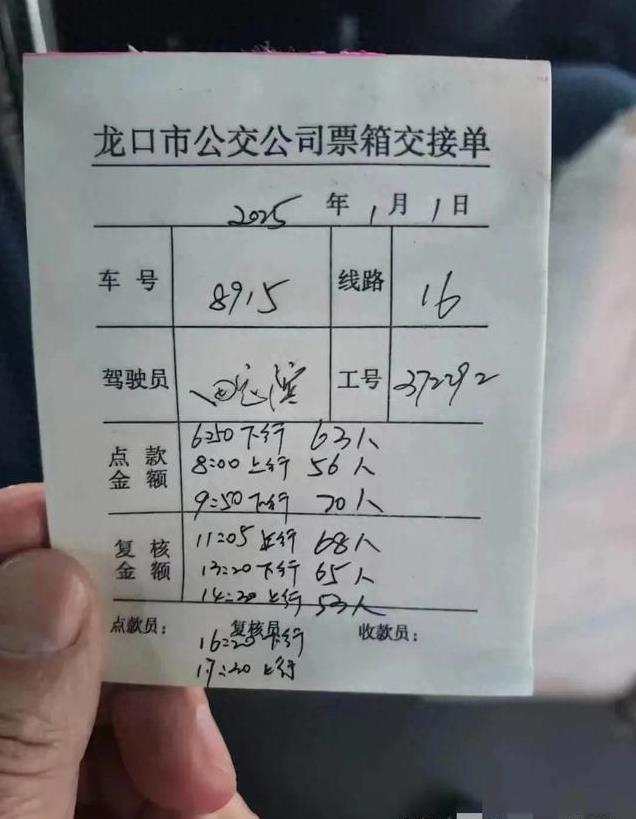 龙口市公交公司票箱交接单
2025 年 1 月 1 日
车号 8915 线路 16
驾驶员 工号 37292
点款金额
6:50 下行 63人
8:00 上行 56人
9:50 下行 70人
复核金额
11:05 上行 68人
13:20 下行 65人
14:20 上行 53人
点款员: 复核员 收款员:
16:20 下行
17:20 上行